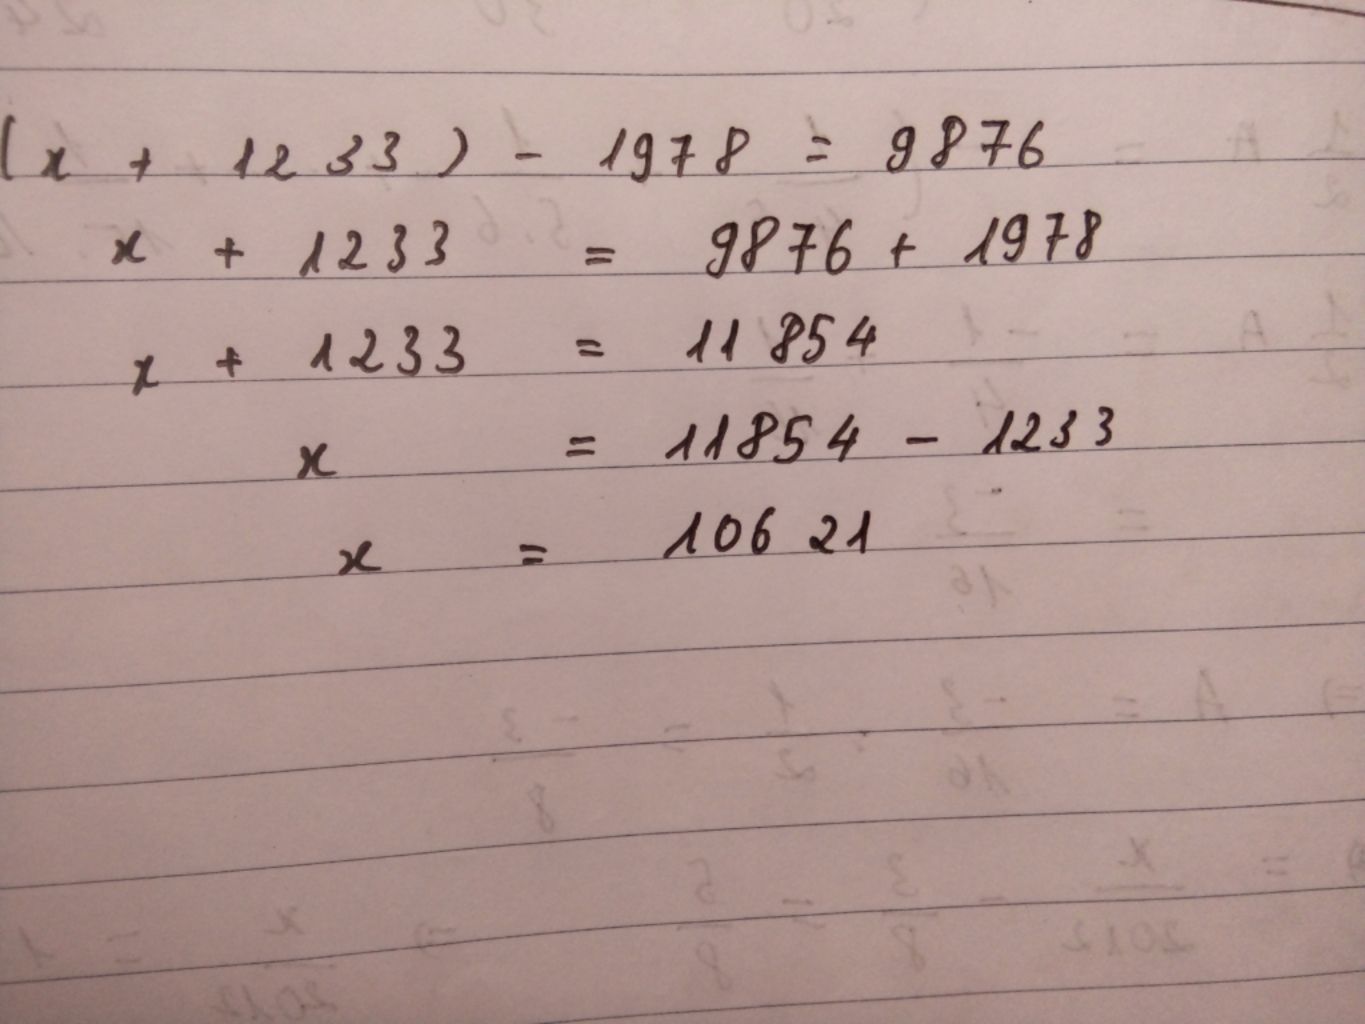 (x + 1233) - 1978 = 9876
x + 1233 = 9876 + 1978
x + 1233 = 11854
x = 11854 - 1233
x = 10621